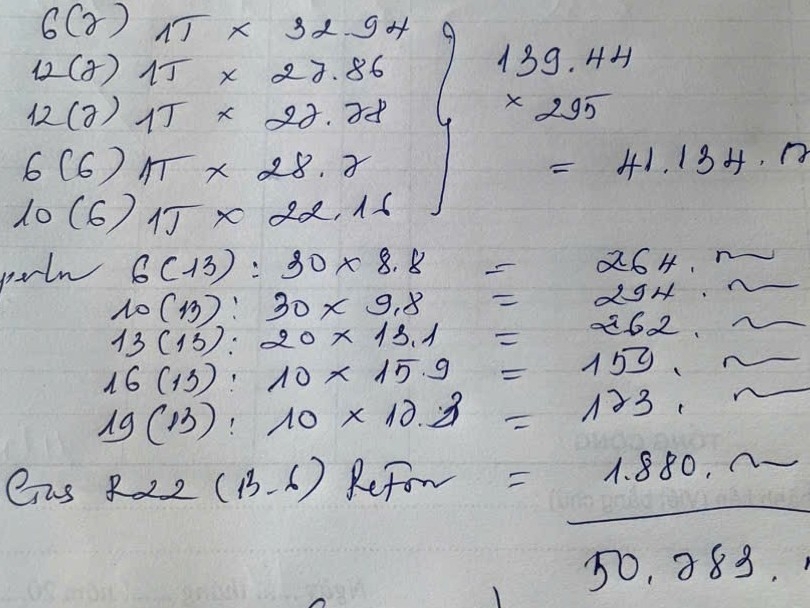 6(7) 1T × 32.94
12(7) 1T × 27.86
12(7) 1T × 27.78
6(6) 1T × 28.7
10(6) 1T × 22.16
139.44
× 295
= 41.134.
6(13): 30 × 8.8 = 264.
10(13): 30 × 9,8 = 294.
13(13): 20 × 13.1 = 262.
16(13): 10 × 15.9 = 159.
19(13): 10 × 17.3 = 173.
Gas R22 (13.6) Refron = 1.880.
50.783.